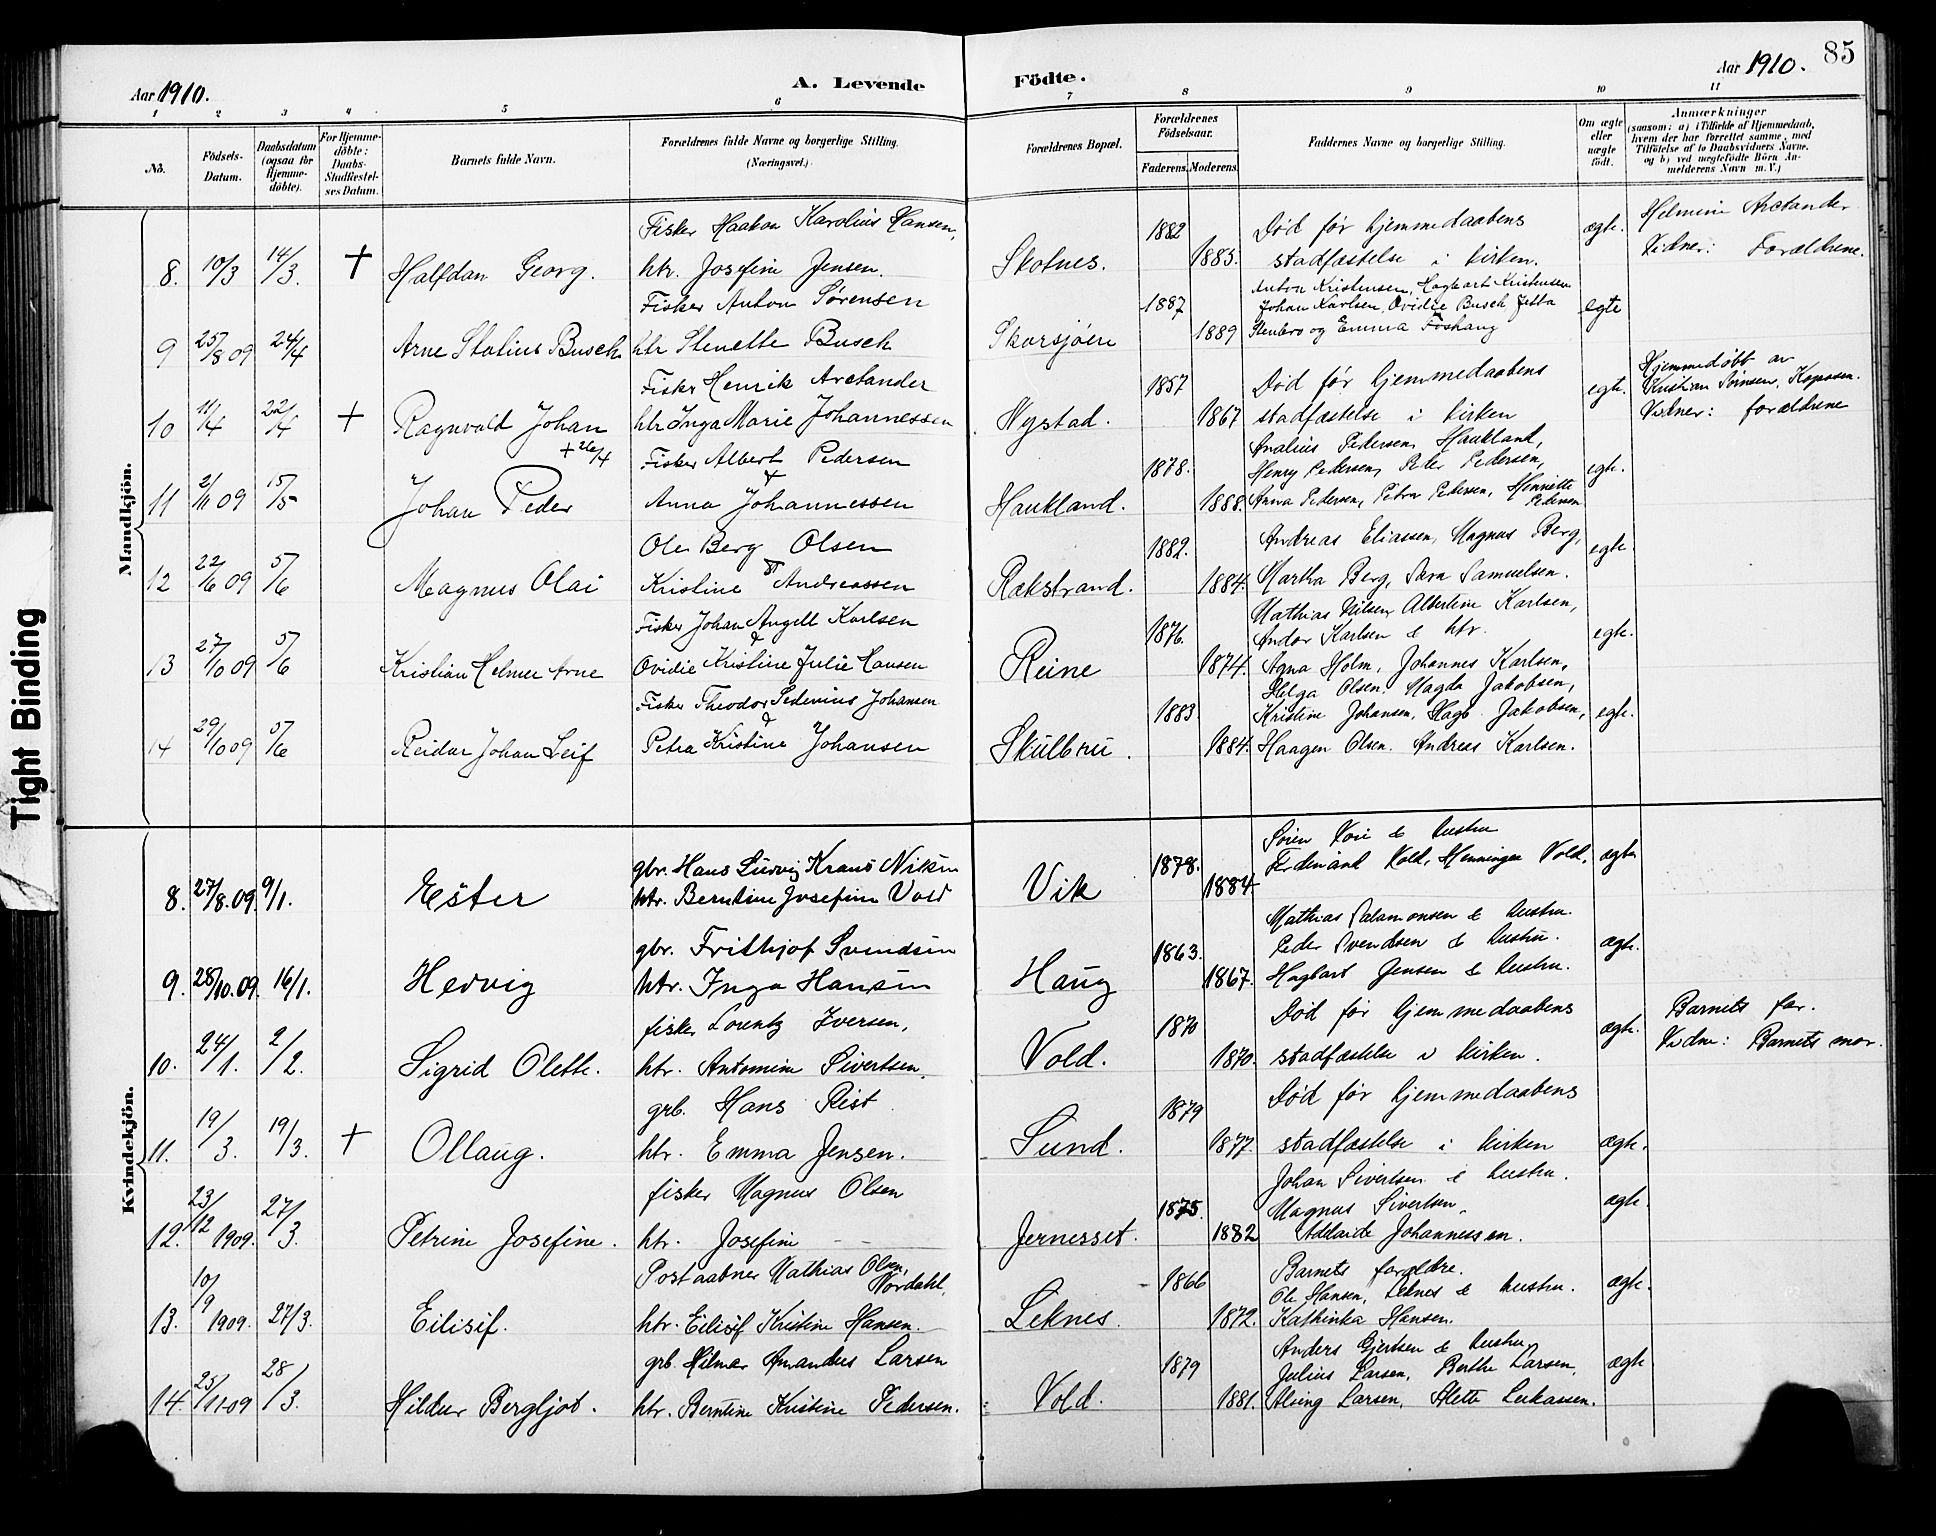 Aar 1910.
A. Levende
Födte.
Aar 1910. 85
1 2 3 4 5 6 7 8 9 10 11
No.
Födsels-Datum.
Daabsdatum (ogsaa for Hjemme-döbte).
For Hjemme-döbte: Daabs-Stadfæstel-ses Datum.
Barnets fulde Navn.
Forældrenes fulde Navne og borgerlige Stilling. (Næringsvei.)
Forældrenes Bopæl.
Forældrenes Födselsaar.
Faderens. Moderens.
Faddernes Navne og borgerlige Stilling.
Om ægte eller uægte födt.
Anmærkninger (saasom: a) i Tilfælde af Hjemmedaab, hvem der har forrettet samme, med Tilföielse af to Daabsvidners Navne, og b) ved uægtefödte Börn An-melderens Navn m. V.)
Mandkjön.
Fisker Haakon Karolius Hansen, 1882 Død før hjemmedaabens ægte. Helmine Arctander
8. 10/3 14/3. + Halfdan Georg. htr. Josefine Jensen. Skotnes. 1885. stadfæstelse i kirken. Vidner: Forældrene.
Fisker Anton Sørensen 1887 Anton Kristensen, Hagbart Kristensen
Johan Karlsen, Ovidie Busch, Jetta egte
9 25/8 09 24/4 Arne Stolius Busch htr Stenette Busch Skarsjøen 1889 Stenbro og Emma Foshaug
Fisker Henrik Arctander 1857 Død før hjemmedaabens egte. Hjemmedøbt av
Kristian Sørnsen, Kopasen.
10 11/4 22/4 + Ragnvald Johan htr Inga Marie Johannessen Nystad. 1867 stadfæstelse i kirken Vidner: forældrene
+ 26/4
Fisker Albert Pedersen 1878. Analius Pedersen, Haukland,
& Henry Pedersen, Peter Pedersen, egte.
11 2/11 09 15/5 Johan Peder Anna Johannessen Haukland. 1888. Anna Pedersen, Petra Pedersen, Henriette Pedersen
Ole Berg Olsen 1882. Andreas Eliassen, Magnus Berg, egte.
12 22/6 09 5/6 Magnus Olai Kristine & Andreassen Rækstrand. 1884. Martha Berg, Sara Samuelsen.
Fisker Johan Angell Karlsen 1876. Mathias Nilsen, Albertine Karlsen,
& Andor Karlsen & htr. egte.
13 27/10 09 5/6 Kristian Helmer Arne Ovidie Kristine Julie Hansen Reine 1874. Agna Holm, Johannes Karlsen,
Fisker Theodor Sedenius Johansen 1883. Helga Olsen. Magda Jakobsen,
& Kristine Johansen, Hagb. Jakobsen, egte.
14 29/10 09 5/6 Reidar Johan Leif Petra Kristine Johansen Skulbru. 1884. Haagen Olsen. Andreas Karlsen.
Kvindekjön.
gbr. Hans Ludvig Kraus Niksen 1878. & hustru
8. 27/8.09. 9/1. Ester htr. Berntine Josefine Vold Vik 1884. Ferdinand Vold, Henninge Vold. ægte
gbr. Frithjof Svendsen 1863. Mathias Salamonsen & hustru.
Peder Svendsen & hustru. ægte.
9. 28/10.09. 16/1. Hedvig htr. Inga Hansen Haug 1867. Hagbart Jensen & hustru.
fisker Lorentz Iversen, 1870 Død før hjemmedaabens ægte. Barnets far.
10. 24/1. 2/2. Sigrid Olette. htr. Antomine Sivertsen, Vold. 1870. stadfæstelse i kirken. Vidne: Barnets mor.
grb. Hans Rist 1879 Død før hjemmedaabens
11. 19/3. 19/3. + Ollaug. htr. Emma Jensen. Sund. 1877. stadfæstelse i kirken ægte.
fisker Magnus Olsen 1875. Johan Sivertsen & hustru.
Magnus Sivertsen, ægte.
12. 23/12 1909. 27/3. Petrine Josefine. htr. Josefine — — Jernesset. 1882 Adelaide Johannessen.
Postaabner Mathias Olsen, Nordahl, 1866 Barnets forældre.
Ole Hansen, Leknes & hustru. ægte.
13. 10/19 1909. 27/3. Eilisif. htr. Eilisif Kristine Hansen. Leknes. 1872. Kathinka Hansen.
grb. Hilmar Amandus Larsen 1879 Anders Gjertsen & hustru,
Julius Larsen, Berthe Larsen, ægte.
14. 25/11.09 28/3. Hildur Bergljot. htr. Berntine Kristine Pedersen. Vold. 1881. Larsen, Alette Lukassen.
Tight Binding